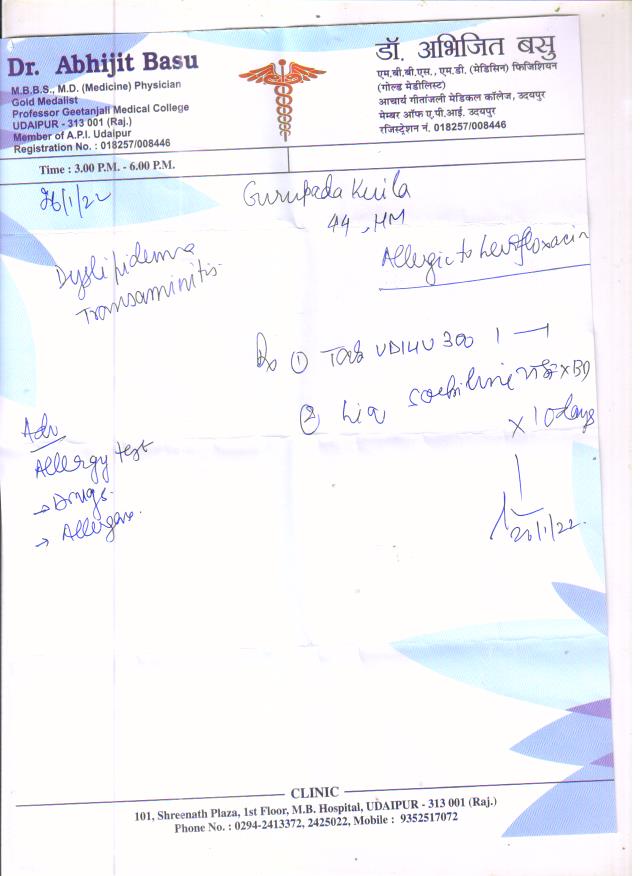 Dr. Abhijit Basu
M.B.B.S., M.D. (Medicine) Physician
Gold Medalist
Professor Geetanjali Medical College
UDAIPUR - 313 001 (Raj.)
Member of A.P.I. Udaipur
Registration No. : 018257/008446
Time : 3.00 P.M. - 6.00 P.M.
डॉ. अभिजित बसु
एम.बी.बी.एस., एम.डी. (मेडिसिन) फिजिशियन
(गोल्ड मेडीलिस्ट)
आचार्य गीतांजली मेडिकल कॉलेज, उदयपुर
मेम्बर ऑफ ए.पी.आई. उदयपुर
रजिस्ट्रेशन नं. 018257/008446
26/1/22
Gurupada Kuila
44,
Allergic to Levofloxacin
Dyslipidemia
Transaminitis
Rx ① Tab UDILIV 300 1 —
② Liq x BD
x 10 days
Adv
Allergy test
→ Drugs.
→
26/1/22
CLINIC
101, Shreenath Plaza, 1st Floor, M.B. Hospital, UDAIPUR - 313 001 (Raj.)
Phone No. : 0294-2413372, 2425022, Mobile : 9352517072